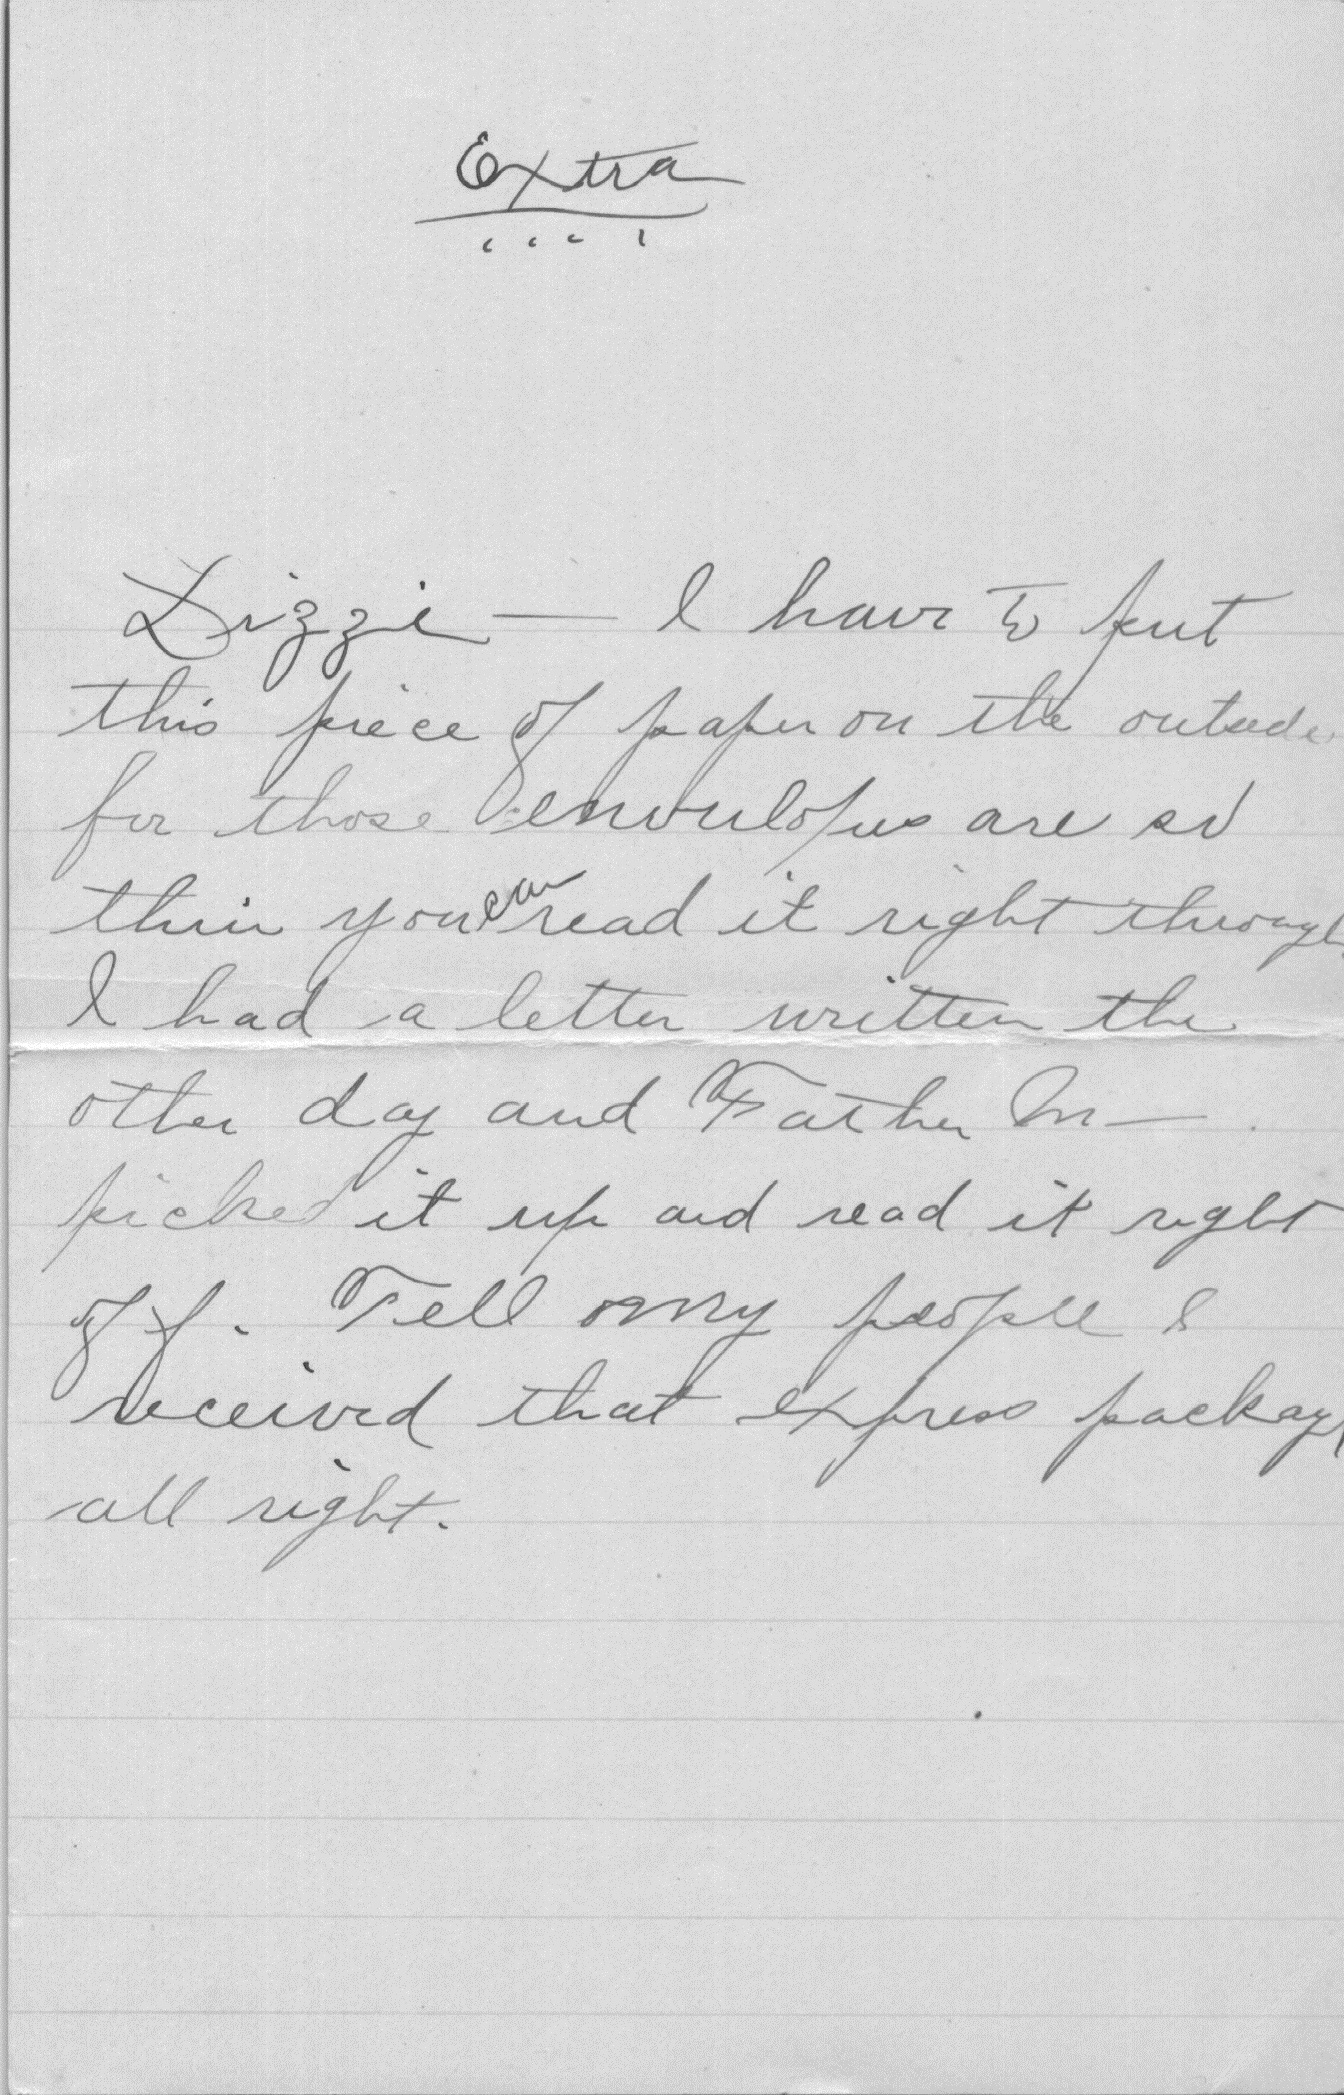 Extra
Lizzie — I have to put
this piece of paper on the outside
for those envoulopes are so
thin you can read it right through
I had a letter written the
other day and Father M—
picked it up and read it right
off. Tell my people I
received that express package
all right.